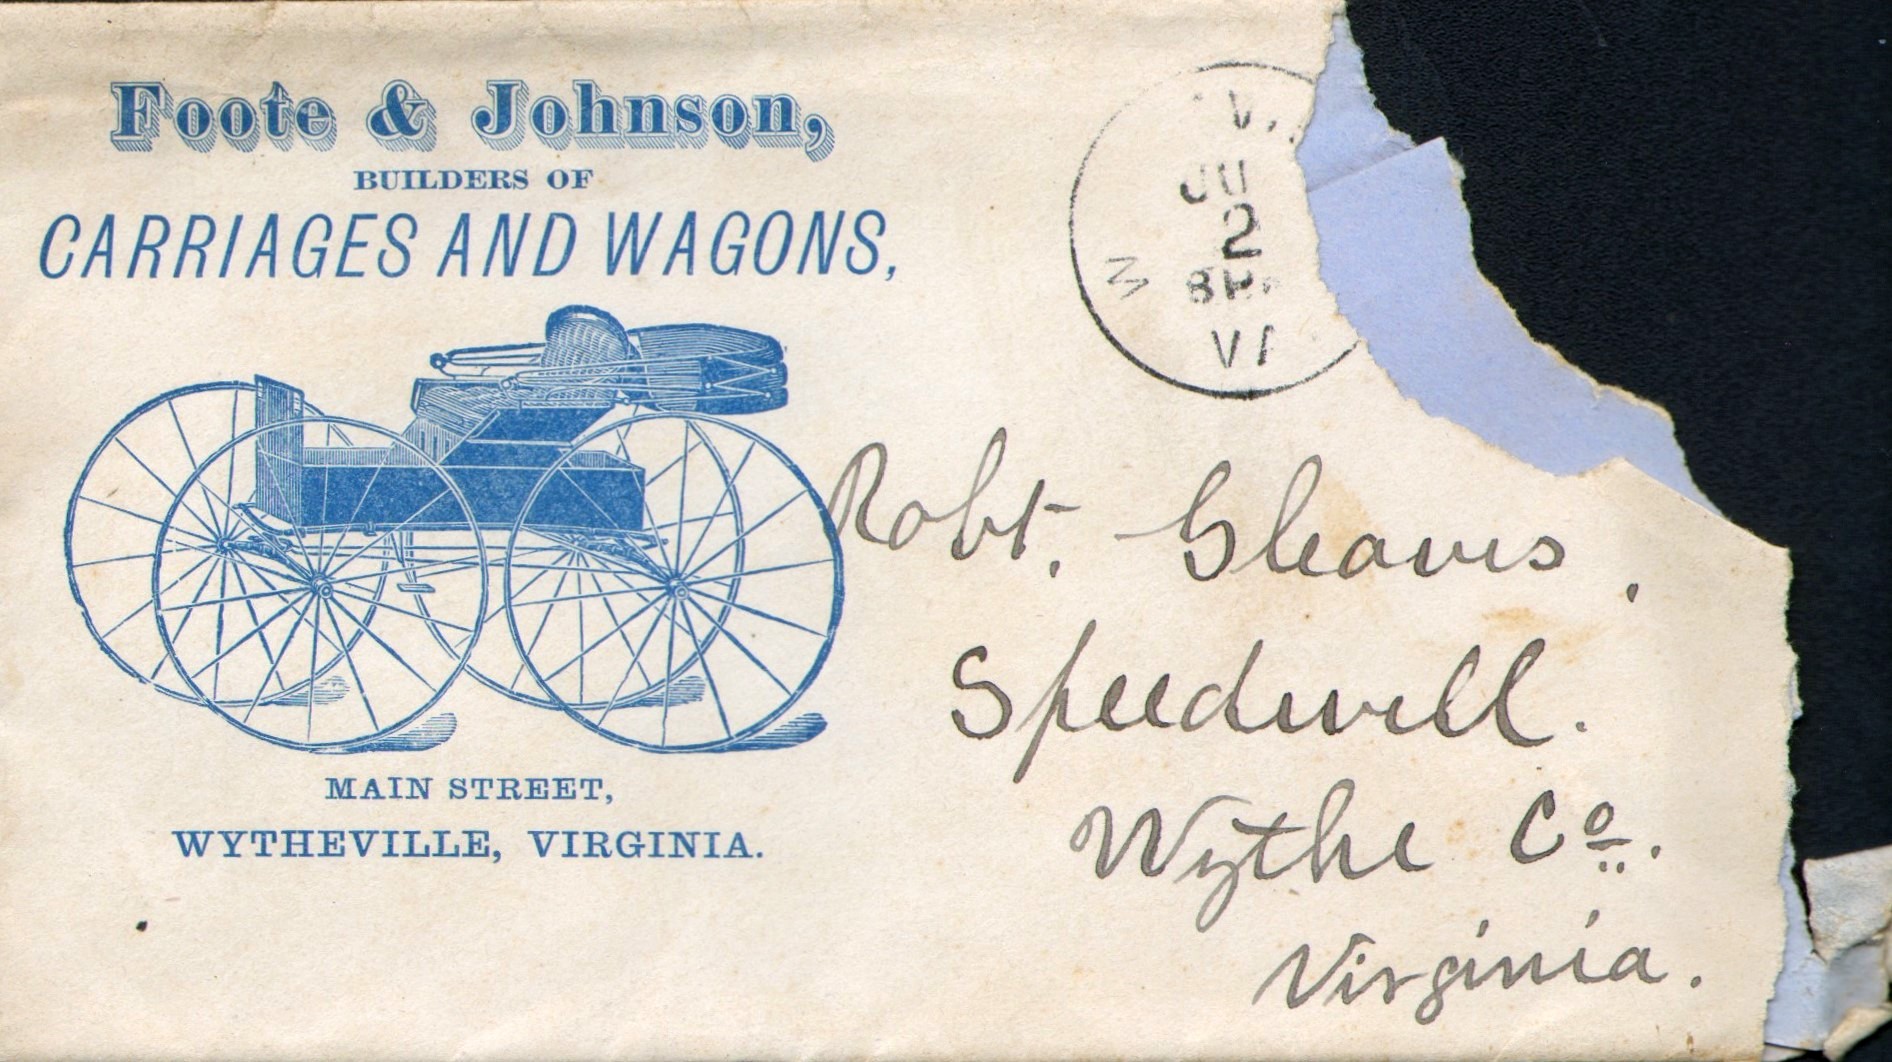 Foote & Johnson,
BUILDERS OF
CARRIAGES AND WAGONS,
MAIN STREET,
WYTHEVILLE, VIRGINIA.
JU
2
VA
Robt. Gleaves.
Speedwell.
Wythe Co.
Virginia.